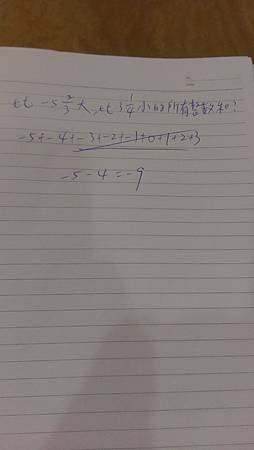 比 -5 2/3 大,比 3 1/4 小的所有整數和?
-5+-4+-3+-2+-1+0+1+2+3
-5-4=-9